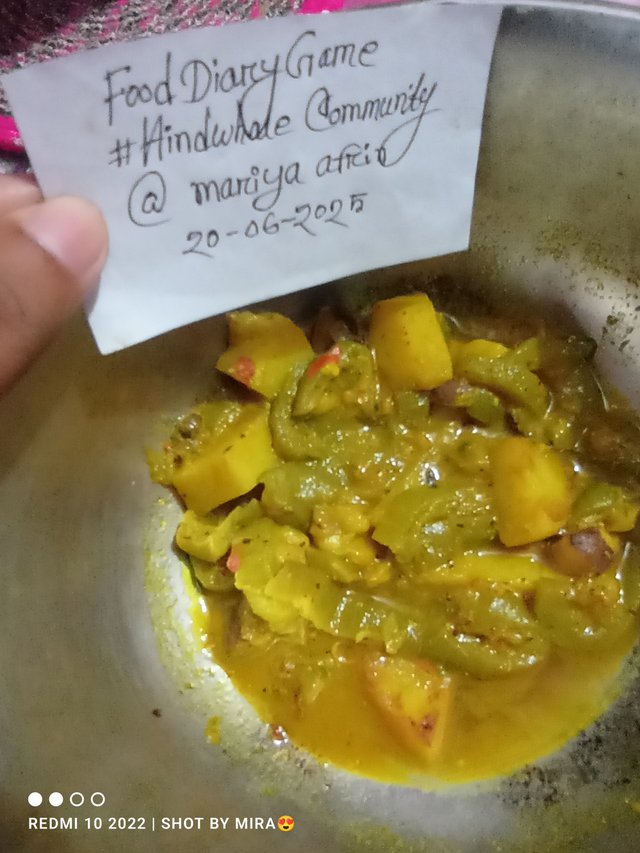 Food Diary Game
#Hindwhale Community
@ mariya afrin
20-06-2025
REDMI 10 2022 | SHOT BY MIRA😍